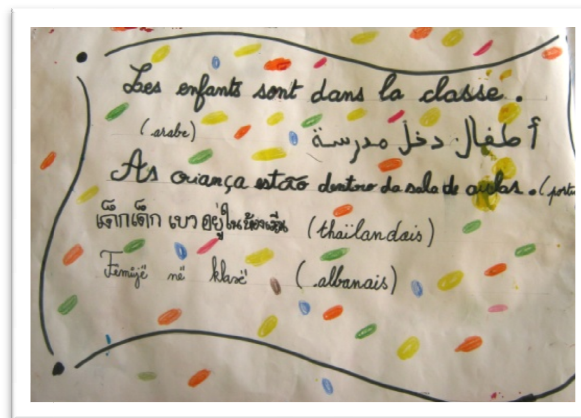 Les enfants sont dans la classe.
(arabe) أطفال دخل مدرسة
As criança estão dentro da sala de aulas. (portu
เด็กเด็ก เขา อยู่ใน ห้องเรียน (thaïlandais)
Femijë në klasë (albanais)